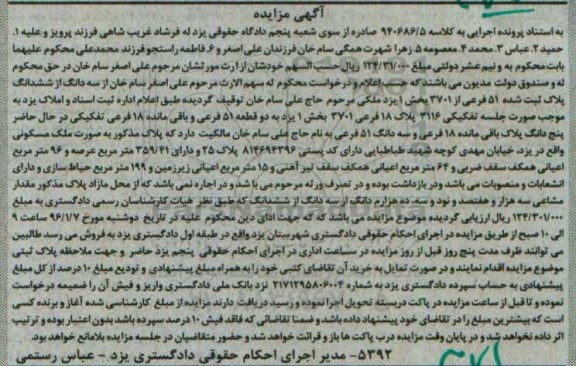 آگهی مزایده
به استناد پرونده اجرایی به کلاسه ۹۴۰۶۸۶/۵ صادره از سوی شعبه پنجم دادگاه حقوقی یزد له فرشاد غریب شاهی فرزند پرویز و علیه ۱.
حمید ۲. عباس ۳. محمد ۴. معصومه ۵. زهرا شهرت همگی سام خان فرزندان علی اصغر و ۶. فاطمه راستجو فرزند محمدعلی محکوم علیهما
بابت محکوم به و نیم عشر دولتی مبلغ ۱۲۴/۳۱/۰۰۰ ریال حسب السهم خودشان از ارث مورثشان مرحوم علی اصغر سام خان در حق محکوم
له و صندوق دولت مدیون می باشند که حسب اعلام و درخواست محکوم له سهم الارث مرحوم علی اصغر سام خان از سه دانگ از ششدانگ
پلاک ثبت شده ۵۱ فرعی از ۳۷۰۱ بخش ۱ یزد ملکی مرحوم حاج علی سام خان توقیف گردیده طبق اعلام اداره ثبت اسناد و املاک یزد به
موجب صورت جلسه تفکیکی ۳۱۱۶ پلاک ۱۸ فرعی ۳۷۰۱ بخش ۱ یزد به دو قطعه ۵۱ فرعی و باقی مانده ۱۸ فرعی تفکیکی در حال حاضر
پنج دانگ پلاک باقی مانده ۱۸ فرعی و سه دانگ ۵۱ فرعی به نام حاج علی سام خان مالکیت دارد که پلاک مذکور به صورت ملک مسکونی
واقع در یزد، خیابان مهدی کوچه شهید طباطبایی دارای کد پستی ۸۱۴۶۹۴۳۹۶ پلاک ۲۵ و دارای ۳۵۹/۴۱ متر مربع عرصه و ۹۶ متر مربع
اعیانی همکف سقف ضربی و ۶۴ متر مربع اعیانی همکف سقف تیر آهنی و ۱۵ متر مربع اعیانی زیرزمین و ۱۹۹ متر مربع حیاط سازی و دارای
انشعابات و منصوبات می باشد و در بازداشت بوده و در تصرف ورثه مرحوم می باشد و در اجاره نمی باشد که از محل مازاد پلاک مذکور مقدار
مشاعی سه هزار و هفتصد و نود و سه، ده هزارم دانگ از سه دانگ از ششدانگ که طبق نظر هیات کارشناسان رسمی دادگستری به مبلغ
۱۲۴/۳۰۱/۰۰۰ ریال ارزیابی گردیده موضوع مزایده می باشد که جهت ادای دین محکوم علیه در تاریخ دوشنبه مورخ ۹۶/۱/۷ ساعت ۹
الی ۱۰ صبح از طریق مزایده در اجرای احکام حقوقی دادگستری شهرستان یزد واقع در طبقه اول دادگستری یزد به فروش می رسد طالبین
می توانند ظرف مدت پنج روز قبل از روز مزایده در ساعات اداری در اجرای احکام حقوقی پنجم یزد حاضر و جهت ملاحظه پلاک ثبتی
موضوع مزایده اقدام نمایند و در صورت تمایل به خرید آن تقاضای کتبی خود را به همراه مبلغ پیشنهادی و تودیع مبلغ ۱۰ درصد از کل مبلغ
پیشنهادی به حساب سپرده دادگستری یزد به شماره ۲۱۷۱۲۹۵۸۰۶۰۰۴ نزد بانک ملی دادگستری واریز و فیش آن را ضمیمه درخواست
نموده و تا قبل از ساعت مزایده در پاکت دربسته تحویل اجرا نموده و رسید دریافت دارند مزایده از مبلغ کارشناسی شده آغاز و برنده کسی
است که بیشترین مبلغ را در تقاضای خود پیشنهاد داده باشد و ضمنا تقاضائی که فاقد فیش ۱۰ درصد سپرده باشد بدون اعتبار بوده و ترتیب
اثر داده نخواهد شد و در پایان وقت مزایده درب پاکت ها باز و قرائت خواهد شد و حضور متقاضیان در جلسه مزایده بلامانع خواهد بود.
۵۳۹۲- مدیر اجرای احکام حقوقی دادگستری یزد - عباس رستمی